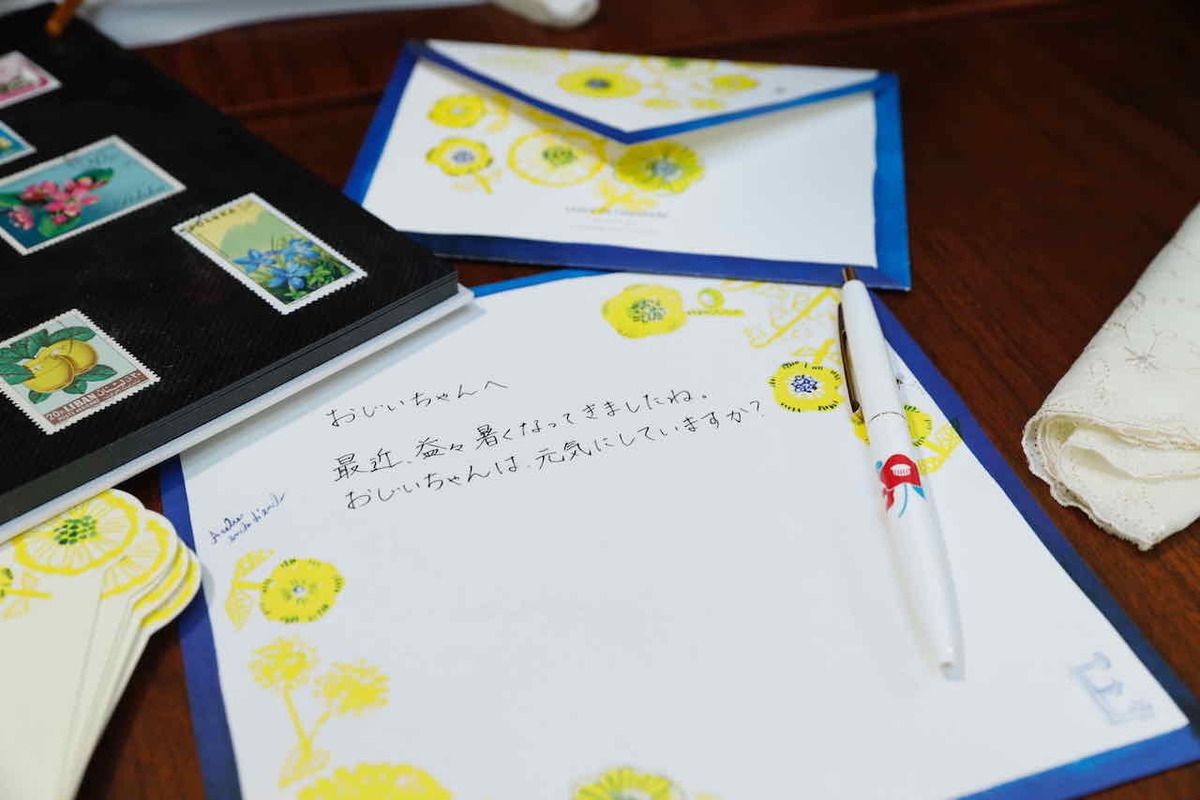 POLSKA
20P LIBAN
おじいちゃんへ
最近、益々暑くなってきましたね。
おじいちゃんは、元気にしていますか?